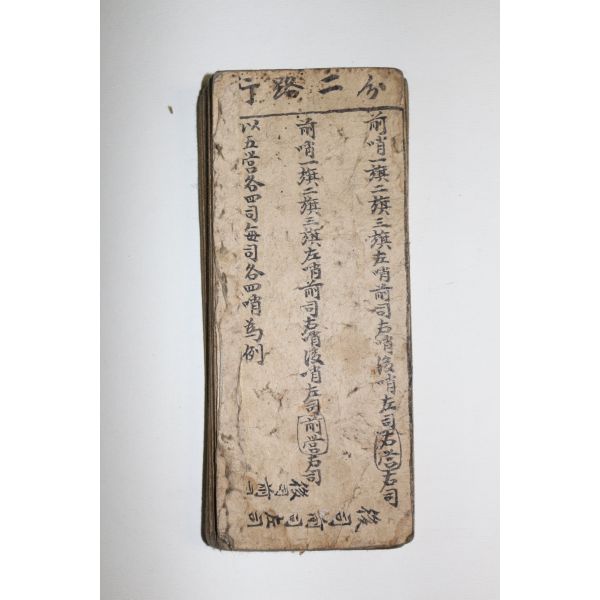 分二路亍
前哨一旗二旗三旗左哨前司右哨後哨左司右營右司
前哨一旗二旗三旗左哨前司右哨後哨左司前營右司
以五営各四司每司各四哨為例
後司前司左司
後司前司